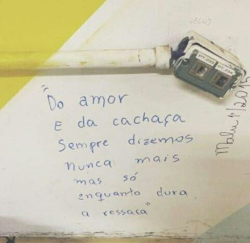 "Do amor
E da cachaça
Sempre dizemos
nunca mais
mas só
enquanto dura
a ressaca"
Malu